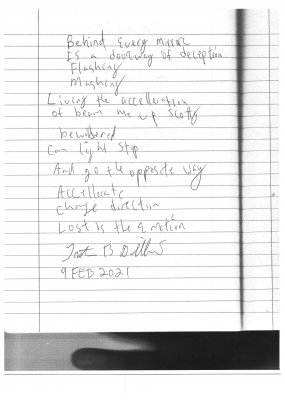 Behind Every mirror
Is a doorway of deception
Flashing
Mashing
Living the accelleration
of beam me up Scotty
bewildered
Can light stop
And go the opposite way
Accellerate
change direction
Lost is the emotion
B
9 FEB 2021